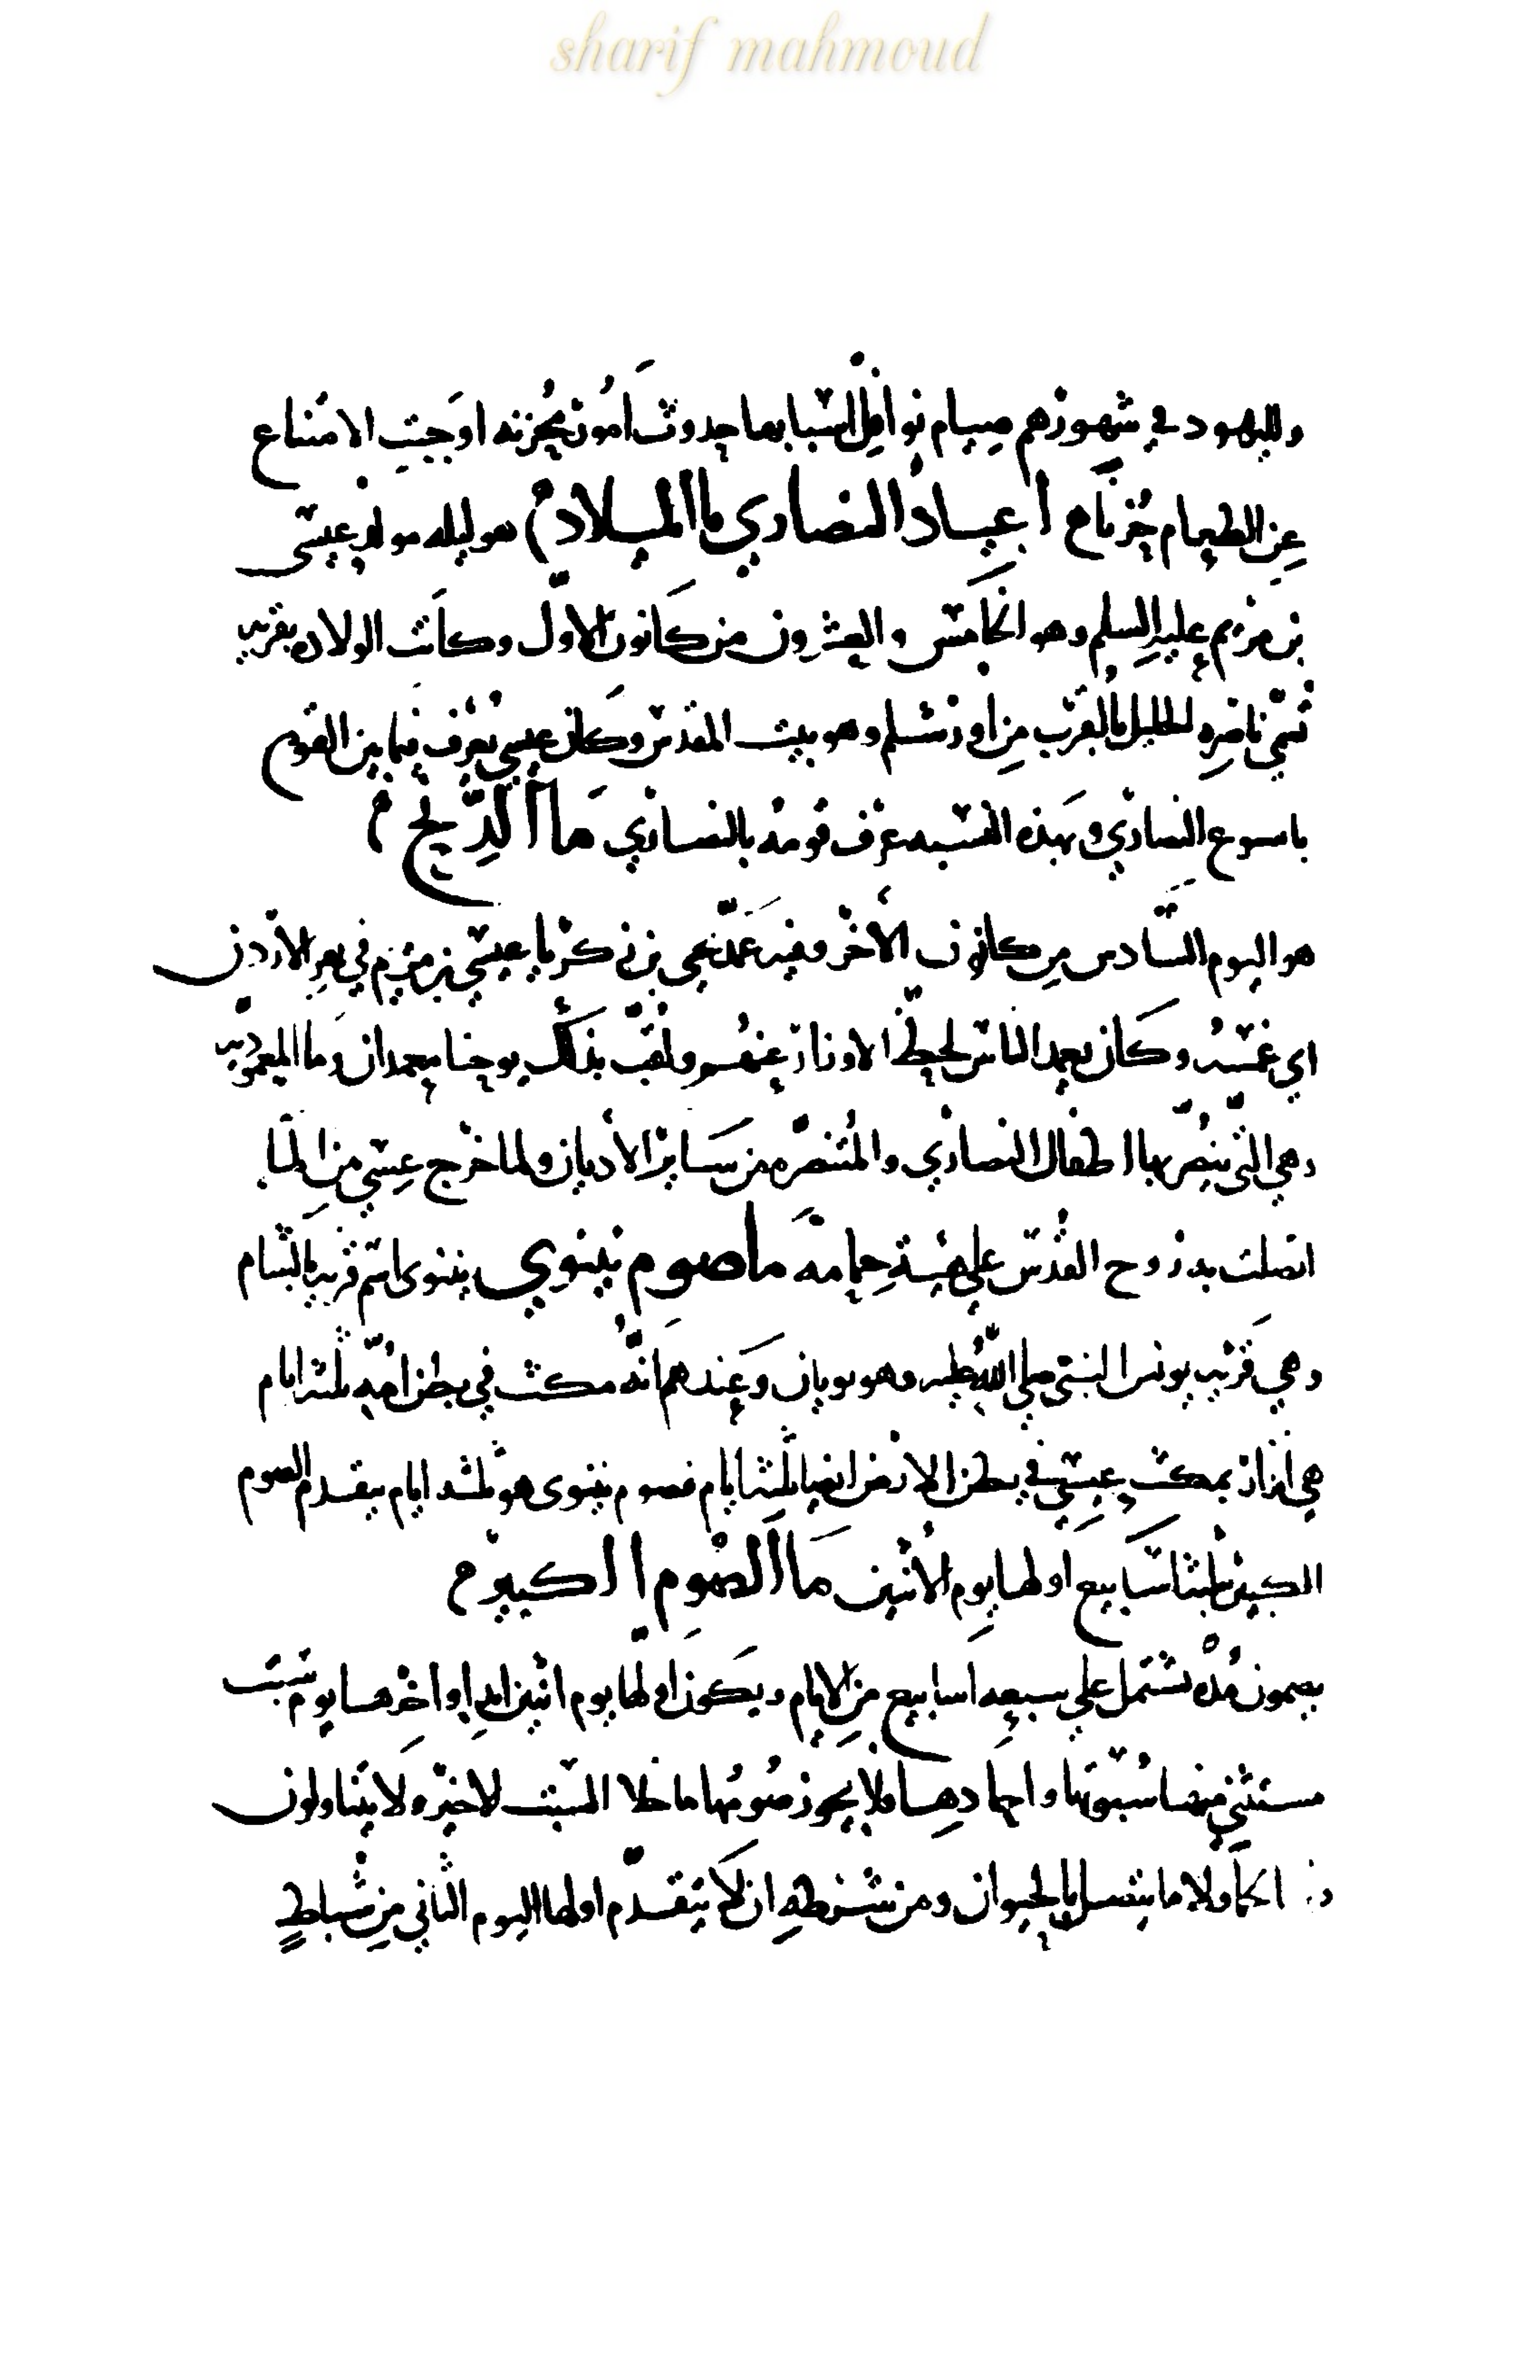 sharif mahmoud
ولليهود في شهورهم صيام نوافل اسبابها حدوث امور محزنه اوجبت الامتناع
عن الطعام حزنا اعياد النصاري ما الميلاد هو ليله مولد عيسى
بن مريم عليه السلم وهو الخامس والعشرون من كانون الاول وكانت الولاده بقريه
تسمي ناصره الخليل بالقرب من اورشلم وهو بيت المقدس وكان عيسي يعرف فيما بين القوم
باسوع النصاري وبهذه النسبه عرف قومه بالنصاري ما الدنح
هو اليوم السادس من كانون الاخر وفيه عمد يحيى بن زكريا عيسي بن مريم في نهر الاردن
اي غمسه وكان يعمد الناس لحط الاوزار عنهم ولقب بذلك يوحنا معمدان وما المعموديه
وهي التي ينصر بها اطفال النصاري والمتنصره من سائر الاديان ولما خرج عيسي من الما
اتصلت به روح القدس علي هيئة حمامه ما صوم نينوي نينوى اسم قريه بالشام
وهي قرية يونس النبي صلي الله عليه وهو يونان وعندهم انه مكث في بطن امه ثلثه ايام
هي انذار بمكث عيسي في بطن الارض ايضا ثلثه ايام فصوم نينوى هو ثلثه ايام يتقدم الصوم
الكبير بثلثة اسابيع اولها يوم الاثنين ما الصوم الكبير
يصمون مده تشتمل علي سبعه اسابيع من الايام ويكون اولها يوم اثنين ابدا واخرها يوم سبت
مستثني منها سبوتها واحادها فلا يجوز صومها ما خلا السبت الاخير ولا يتناولون
لحما ولا ما يتصل بالحيوان ومن شرطه ان لا يتقدم اولها اليوم الثاني من شباط